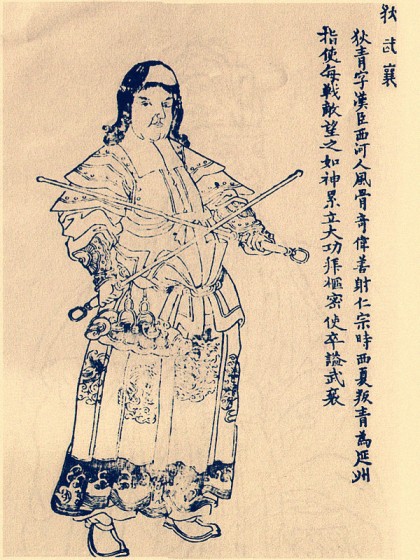 狄武襄
狄青字漢臣西河人風骨奇偉善射仁宗時西夏叛青為延州
指使每戰敵望之如神累立大功拜樞密使卒謚武襄